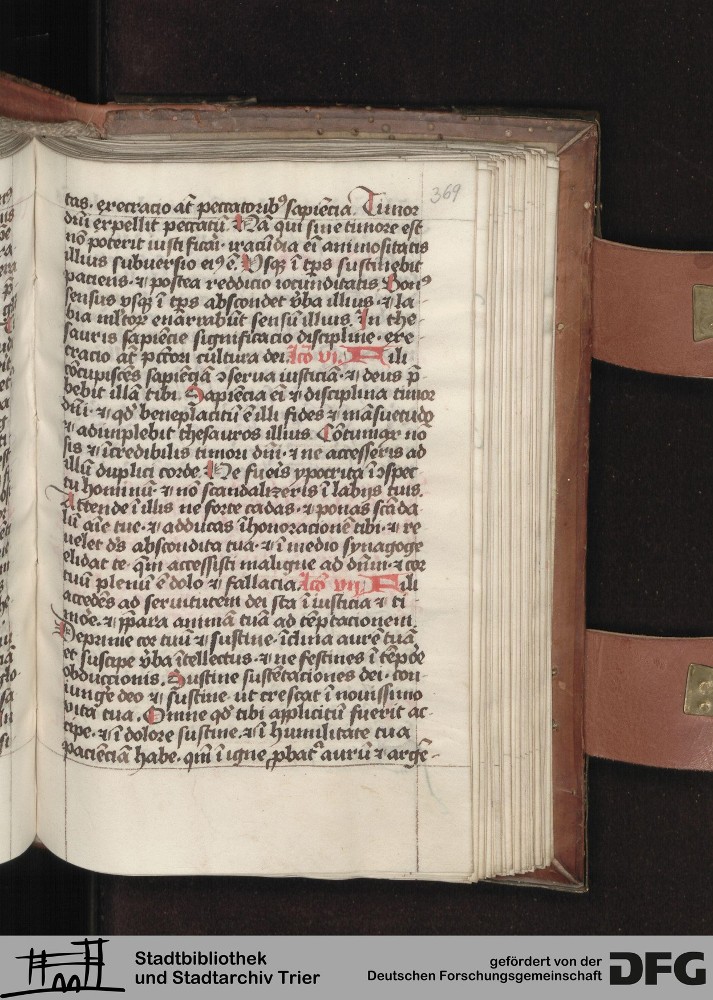 369
tas. execracio aūt peccatorib9 sapiēcia. Timor
dn̄i expellit peccatū. Nā qui sine timore est
nō poterit iustificari. iracūdia eī animositatis
illius subuersio ei9 ē. Vsq̄ ī tp̄s sustinebit
paciens. ⁊ postea reddicio iocunditatis. Bon9
sensus vsq̄ ī tp̄s abscondet v̄ba illius. ⁊ la-
bia ml̄tor enarrabūt sensū illius. In the-
sauris sapiēcie significacio discipline. exe-
cracio aūt pctōri cultura dei. lc̄o vi. Fili
cōcupisces sapiēciā ꝯserua iusticiā. ⁊ deus p̄-
bebit illā tibi. Sapiēcia eī ⁊ disciplina timor
dn̄i. ⁊ qd̄ beneplacitū ē illi fides ⁊ māsuetudo
⁊ adimplebit thesauros illius. Cōtumax nō
sis ⁊ īcredibilis timori dn̄i. ⁊ ne accesseris ad
illū duplici corde. Ne fueris ypocrita ī ꝯspec-
tu hominū. ⁊ nō scandalizeris ī labijs tuis.
Attende ī illis ne forte cadas. ⁊ ponas scāda-
lū aīe tue. ⁊ adducas īhonoracionē tibi. ⁊ re-
uelet ds̄ abscondita tua. ⁊ ī medio synagoge
elidat te. qm̄ accessisti maligne ad dn̄m. ⁊ cor
tuū plenū ē dolo ⁊ fallacia. lc̄o vij. Fili
accedēs ad seruitutem dei sta ī iusticia ⁊ ti-
more. ⁊ p̄para animā tuā ad tēptacionem.
Deprime cor tuū ⁊ sustine. īclina aurē tuā
et suscipe v̄ba ītellectus. ⁊ ne festines ī tēpore
obduccionis. Sustine sustētaciones dei. con-
iunge deo ⁊ sustine. ut crescat ī nouissimo
vita tua. Omne qd̄ tibi applicitū fuerit ac-
cipe. ⁊ ī dolore sustine. ⁊ ī humilitate tua
paciēciā habe. qm̄ ī igne ꝓbat᷑ aurū ⁊ argē-
Stadtbibliothek
und Stadtarchiv Trier
gefördert von der
Deutschen Forschungsgemeinschaft
DFG